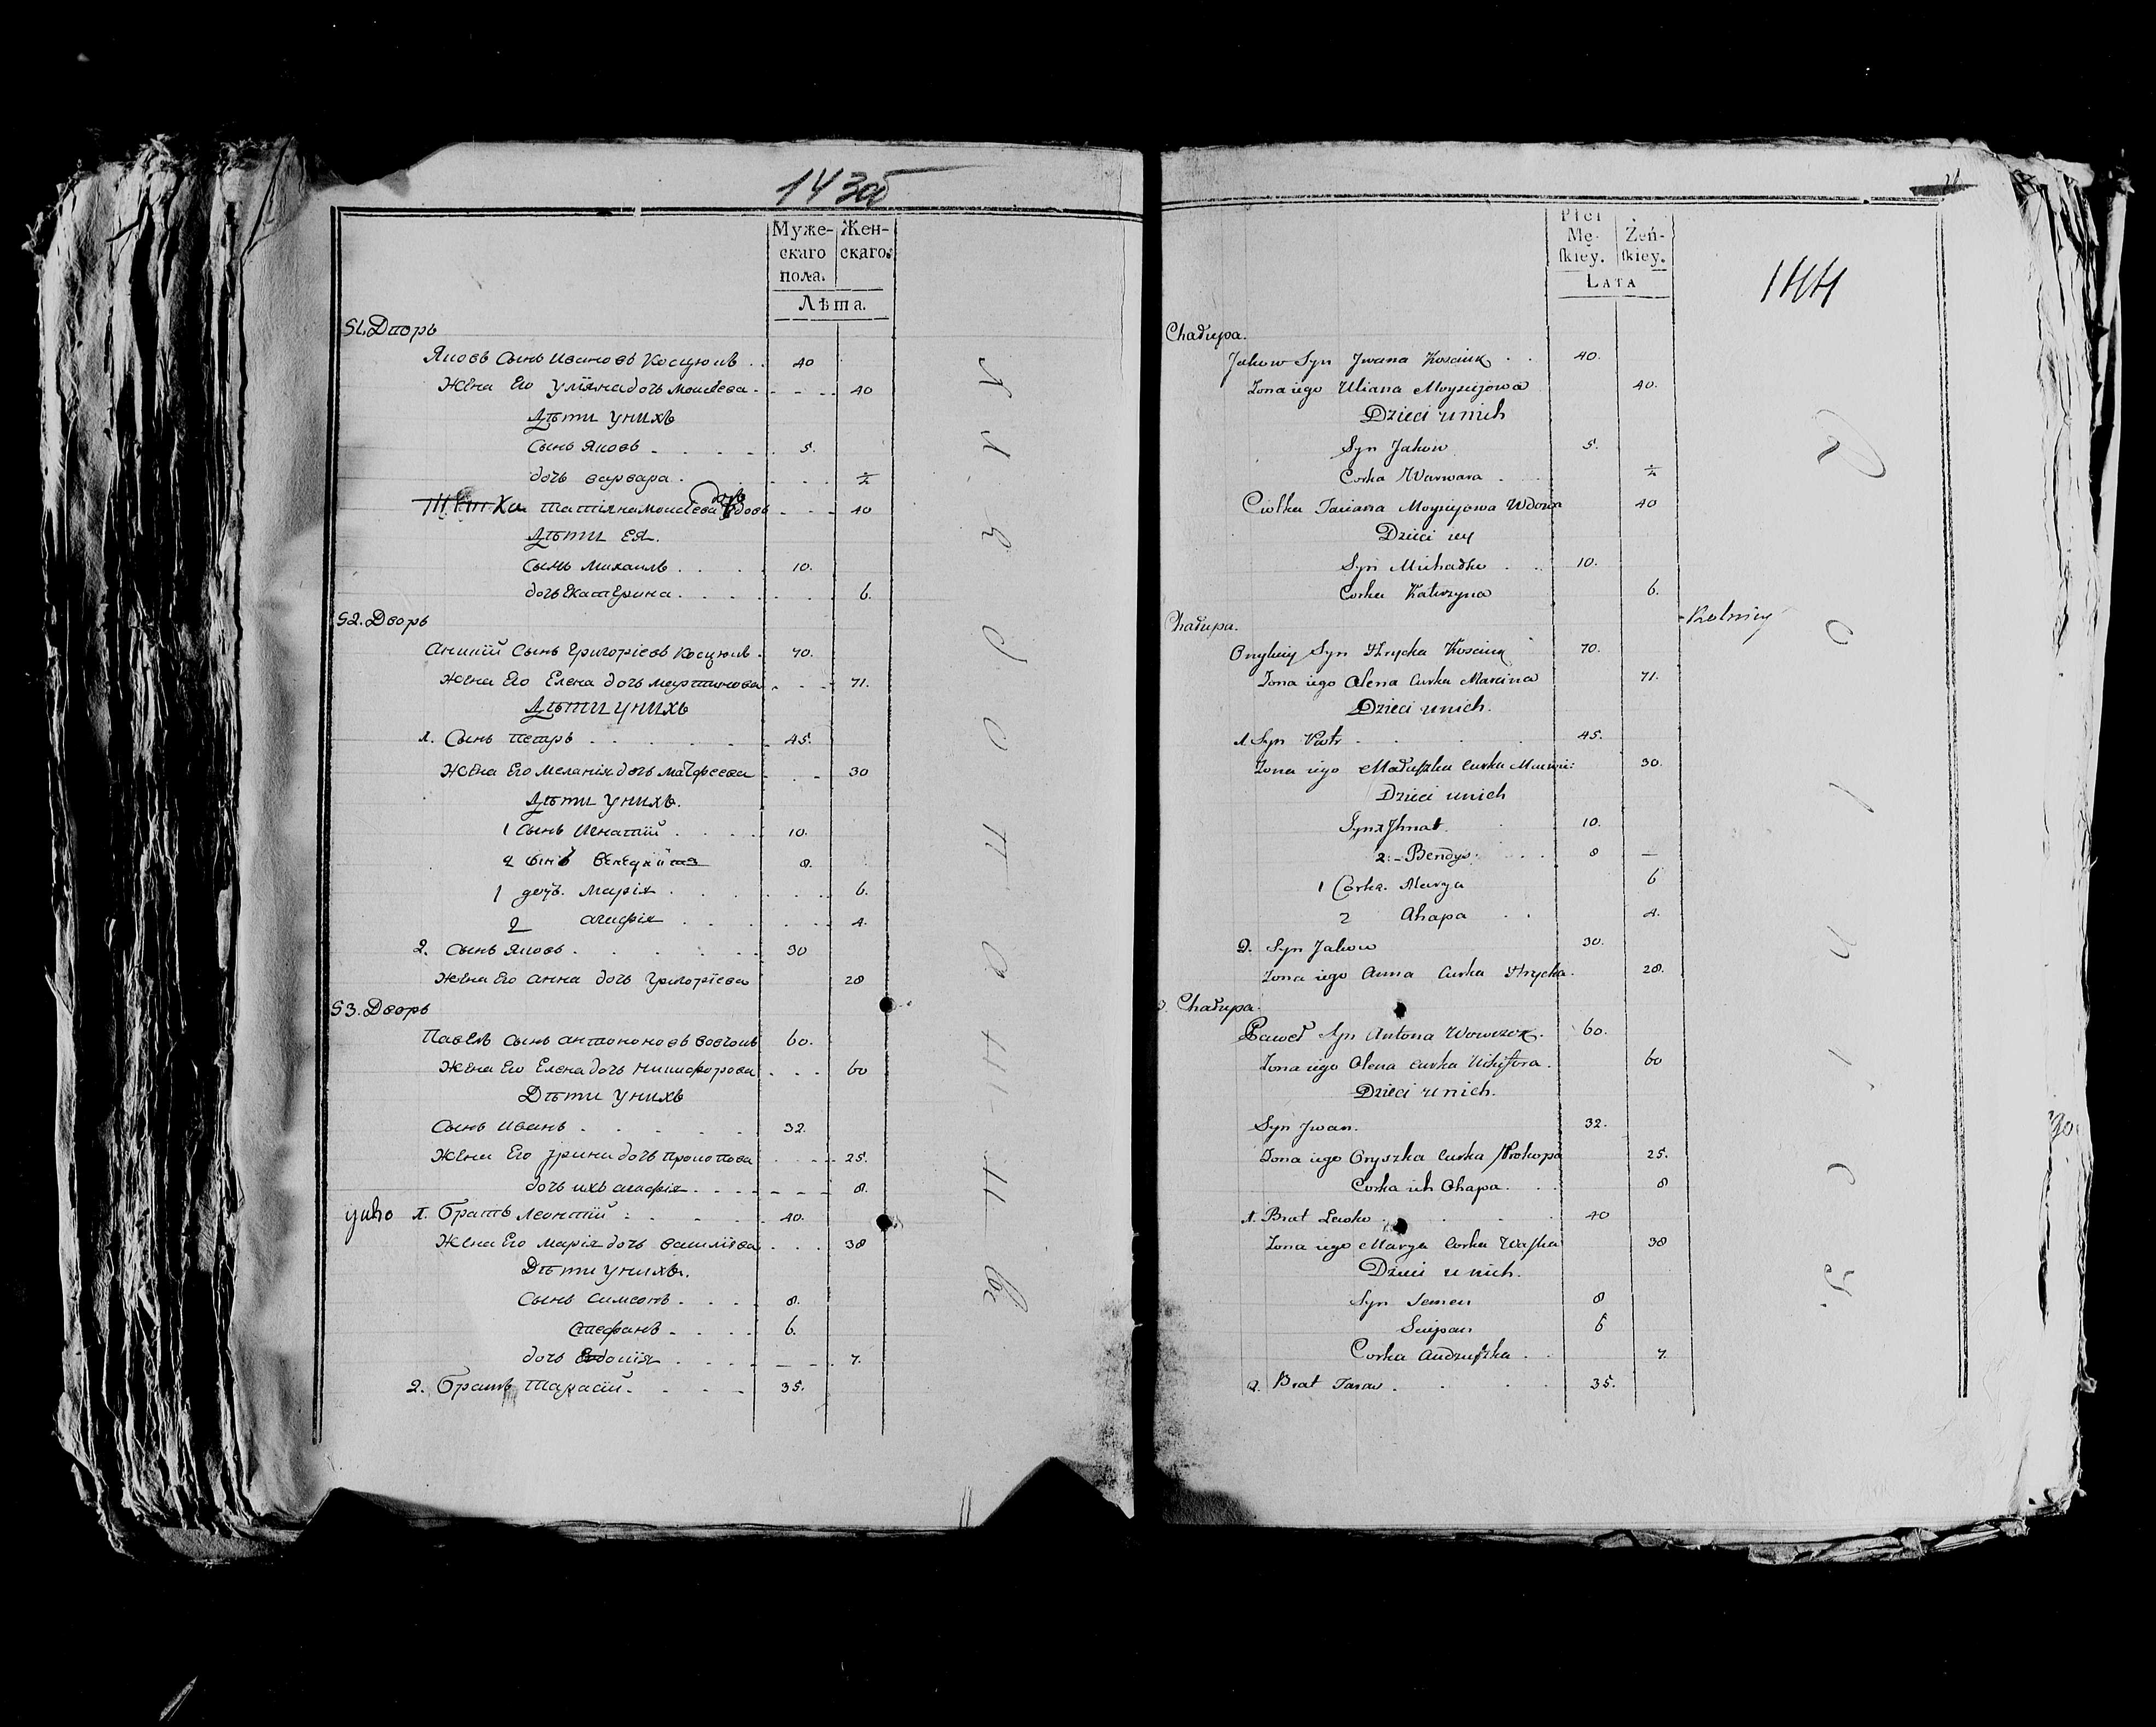 143об
Муже- Жен-
скаго скаго.
пола.
Лѣта.
51. Дворъ
Яковъ Сынъ Ивановъ Косцюкъ . . 40
Жена Его Уліяна дочь Моисѣева - - - - 40
Дѣти унихъ
Сынъ Яковъ . . . . 5.
дочь варвара . . . . ½
Тѣтка татіяна моисѣева дочь вдова - - - 40
Дѣти ея.
Сынъ михаилъ . . . . 10.
дочь Екатерина . . . . . 6.
52. Дворъ
Аникій Сынъ Григоріевъ Косцюкъ . 70.
жена Его Елена дочь мартинова . - - - 71.
Дѣти унихъ
1. Сынъ петръ . . . . . 45.
Жена Его меланія дочь матфеева - . - 30
Дѣти унихъ.
1 Сынъ Игнатій . . . . 10.
2 Сынъ Бенедик 8.
1 дочь. Марія . . . . . 6.
2 агафія . . . . . 4.
2. Сынъ Яковъ . . . . . . 30
жена Его анна дочь Григоріева 28
53. Дворъ
Павелъ Сынъ антоновъ вовчокъ 60.
Жена Его Елена дочь никифорова . . . 60
Дѣти унихъ
Сынъ иванъ . . . . . 32.
Жена Его Ірина дочь прокопова . . - - 25.
дочь ихъ агафія . . - - - - 8.
1. братъ Леонтій : . . . . 40.
Жена Его марія дочь василіева . . . 38
Дѣти унихъ.
Сынъ симеонъ . . . . 8.
Стефанъ . . . . 6.
дочь Евдокія . . . . - - . 7.
2. братъ Тарасій . . . . 35.
Płci
Mę- Żeń-
ſkiey. ſkiey.
LATA
144
Chałupa.
Jakow Syn Jwana Kosciuk . . 40.
Zona iego Uliana Moysiejowa 40.
Dzieci u nich
Syn Jakow 5.
Corka Warwara . . ½
Ciotka Taciana Moysiejowa Wdowa 40
Dzieci iey
Syn Michałko . . 10.
Corka Katerzyna 6.
Chałupa. Rolniy
Onykiy Syn Hrycka Kosciuk 70.
Zona iego Olena Curka Marcina 71.
Dzieci u nich.
1. Syn Piotr . . . . 45.
Zona iego Małaſzka Curka Macwie: 30.
Dzieci u nich
Syn 1 Jhnat . . 10.
2. - Bendys . . . 8 —
1 Corka. Marya 6
2 Ahapa . . 4.
2. Syn Jakow 30.
Zona iego Anna Curka Hrycka . 28.
Chałupa.
Paweł Syn Antona Wowczok . 60.
Zona iego Olena Curka Nikiſtora . 60
Dzieci u nich.
Syn Jwan. 32.
Zona iego Oryszka Curka Prokopa 25.
Corka ich Ohapa . . . 8
1. Brat Lewko . . . . 40
Zona iego Marya Corka Waſka 38
Dzieci u nich.
Syn Semen 8
Sciepan 6
Corka Audzuſzka . . 7.
2. Brat Taras . . . . 35.